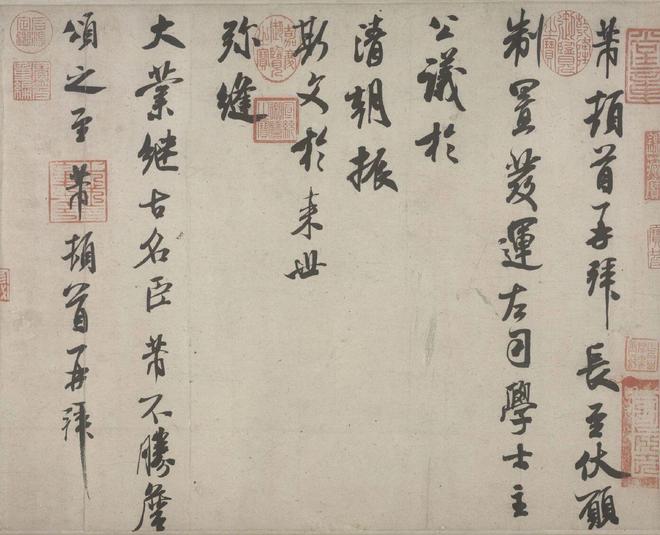 芾頓首再拜長至伏願
制置發運左司學士主
公議於
清朝振
斯文於来世
弥縫
大業継古名臣芾不勝詹
頌之至芾頓首再拜